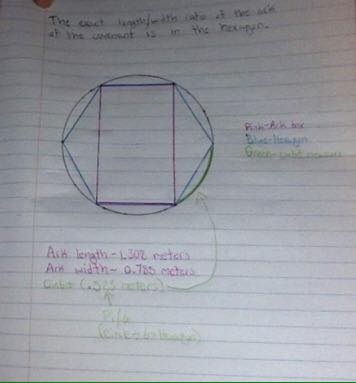 The exact length/width ratio of the ark
of the covenant is in the hexagon.
Pink-Ark box
Blue-Hexagon
Green-cubit measure
Ark length-1.308 meters
Ark width-0.785 meters
Cubit (.523 meters)
Pi/6